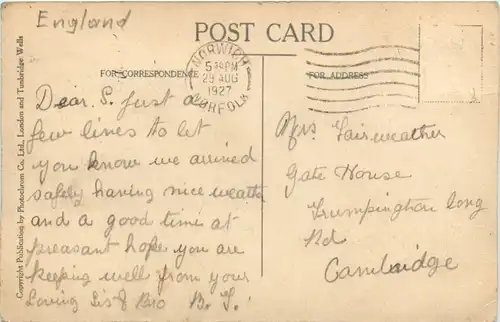 England
POST CARD
NORWICH
5 30 PM
29 AUG
1927
NORFOLK
FOR CORRESPONDENCE
FOR ADDRESS
Copyright Publication by Photochrom Co Ltd., London and Tunbridge Wells
Dear. S. Just a
few lines to let
you know we arrived
safely having nice weather
and a good time at
pleasant hope you are
keeping well from your
Loving Sis & Bro B. T.
Mrs. Fairweather
Gate House
Trumpington long
Rd
Cambridge